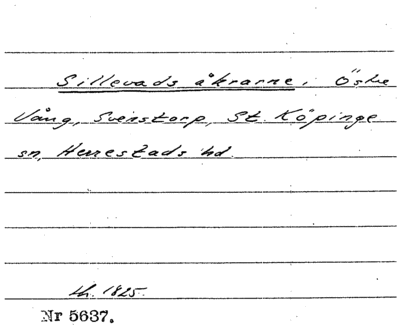 Sillevads åkrarne, Östre
Vång, Svenstorp, St. Köpinge
sn, Herrestads hd.
lh. 1825.
Nr 5637.